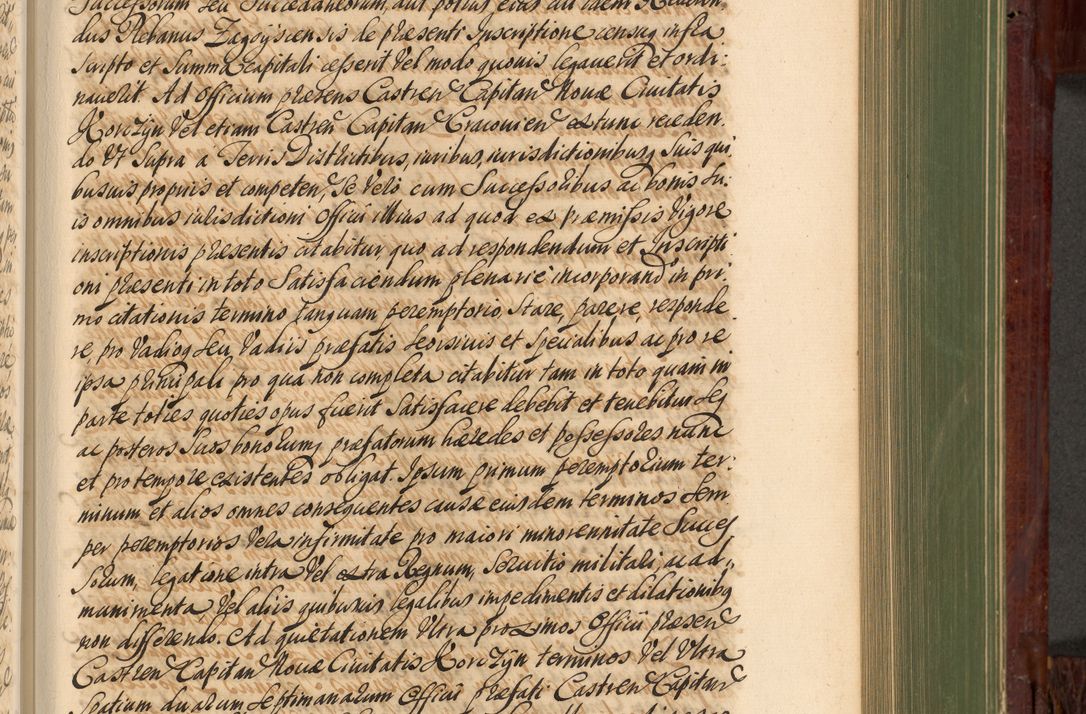 Successorum seu Succedaneorum aut potius eius ad idem
dus Plebanus Zagoysiensis de praesenti Inscriptione census infra
scripto et Summa capitali cesserit Vel modo quovis legaverit et ordi:
naverit. Ad Officium praesens Castren Capitan Novae Civitatis
Korczyn Vel etiam Castren Capitan Cracovien extunc receden
do Ut Supra a Terris Districtibus, iuribus, iurisdictionibusq Suis qui
busuis propriis et competen, Se Vero cum Successoribus ac bonis Su:
is omnibus iurisdictioni Officii illius ad quod ex praemissis Vigore
inscriptionis praesentis citabitur quo ad respondendum et Inscripti
oni praesenti in toto Satisfaciendum plenarie incorporand in pri
mo citationis termino tanquam peremptorio, Stare, parere, responde
re, pro Vadioq Seu Vadiis praefatis Seorsivis et Specialibus ac pro re
ipsa principali pro qua non completa citabitur tam in toto quam in
parte toties quoties opus fuerit Satisfacere debebit et tenebitur Seq
ac posteros Suos bonorumq praefatorum haeredes et possessores nunc
et pro tempore existentes obligat. Ipsum primum peremptorium ter:
minum et alios omnes consequentes causae eiusdem terminos Sem
per peremptorios Vera infirmitate pro maiori minorennitate Succes
sorum, legatione intra Vel extra Regnum, Servitio militari, ac ad„
munimenta, Vel aliis quibusvis legalibus impedimentis et dilationibq
non differendo. Ad quietationem Ultra proximos Officii praesen
Castren Capitan Novae Civitatis Korczyn terminos Vel Ultra
Spatium duarum Septimanarum Officii praefati Castren Capitan